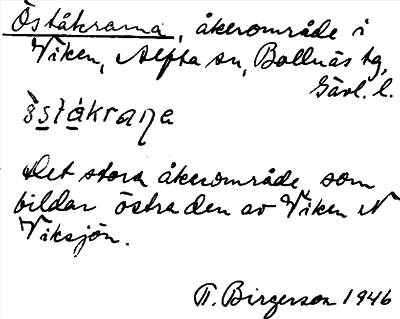 Öståkrarna, åkerområde i
Viken, Alfta sn, Bollnäs tg,
Gävl. l.
ö̀stákraɳa
Det stora åkerområde som
bildar östra den av Viken N
Viksjön.
T. Birgerson 1946